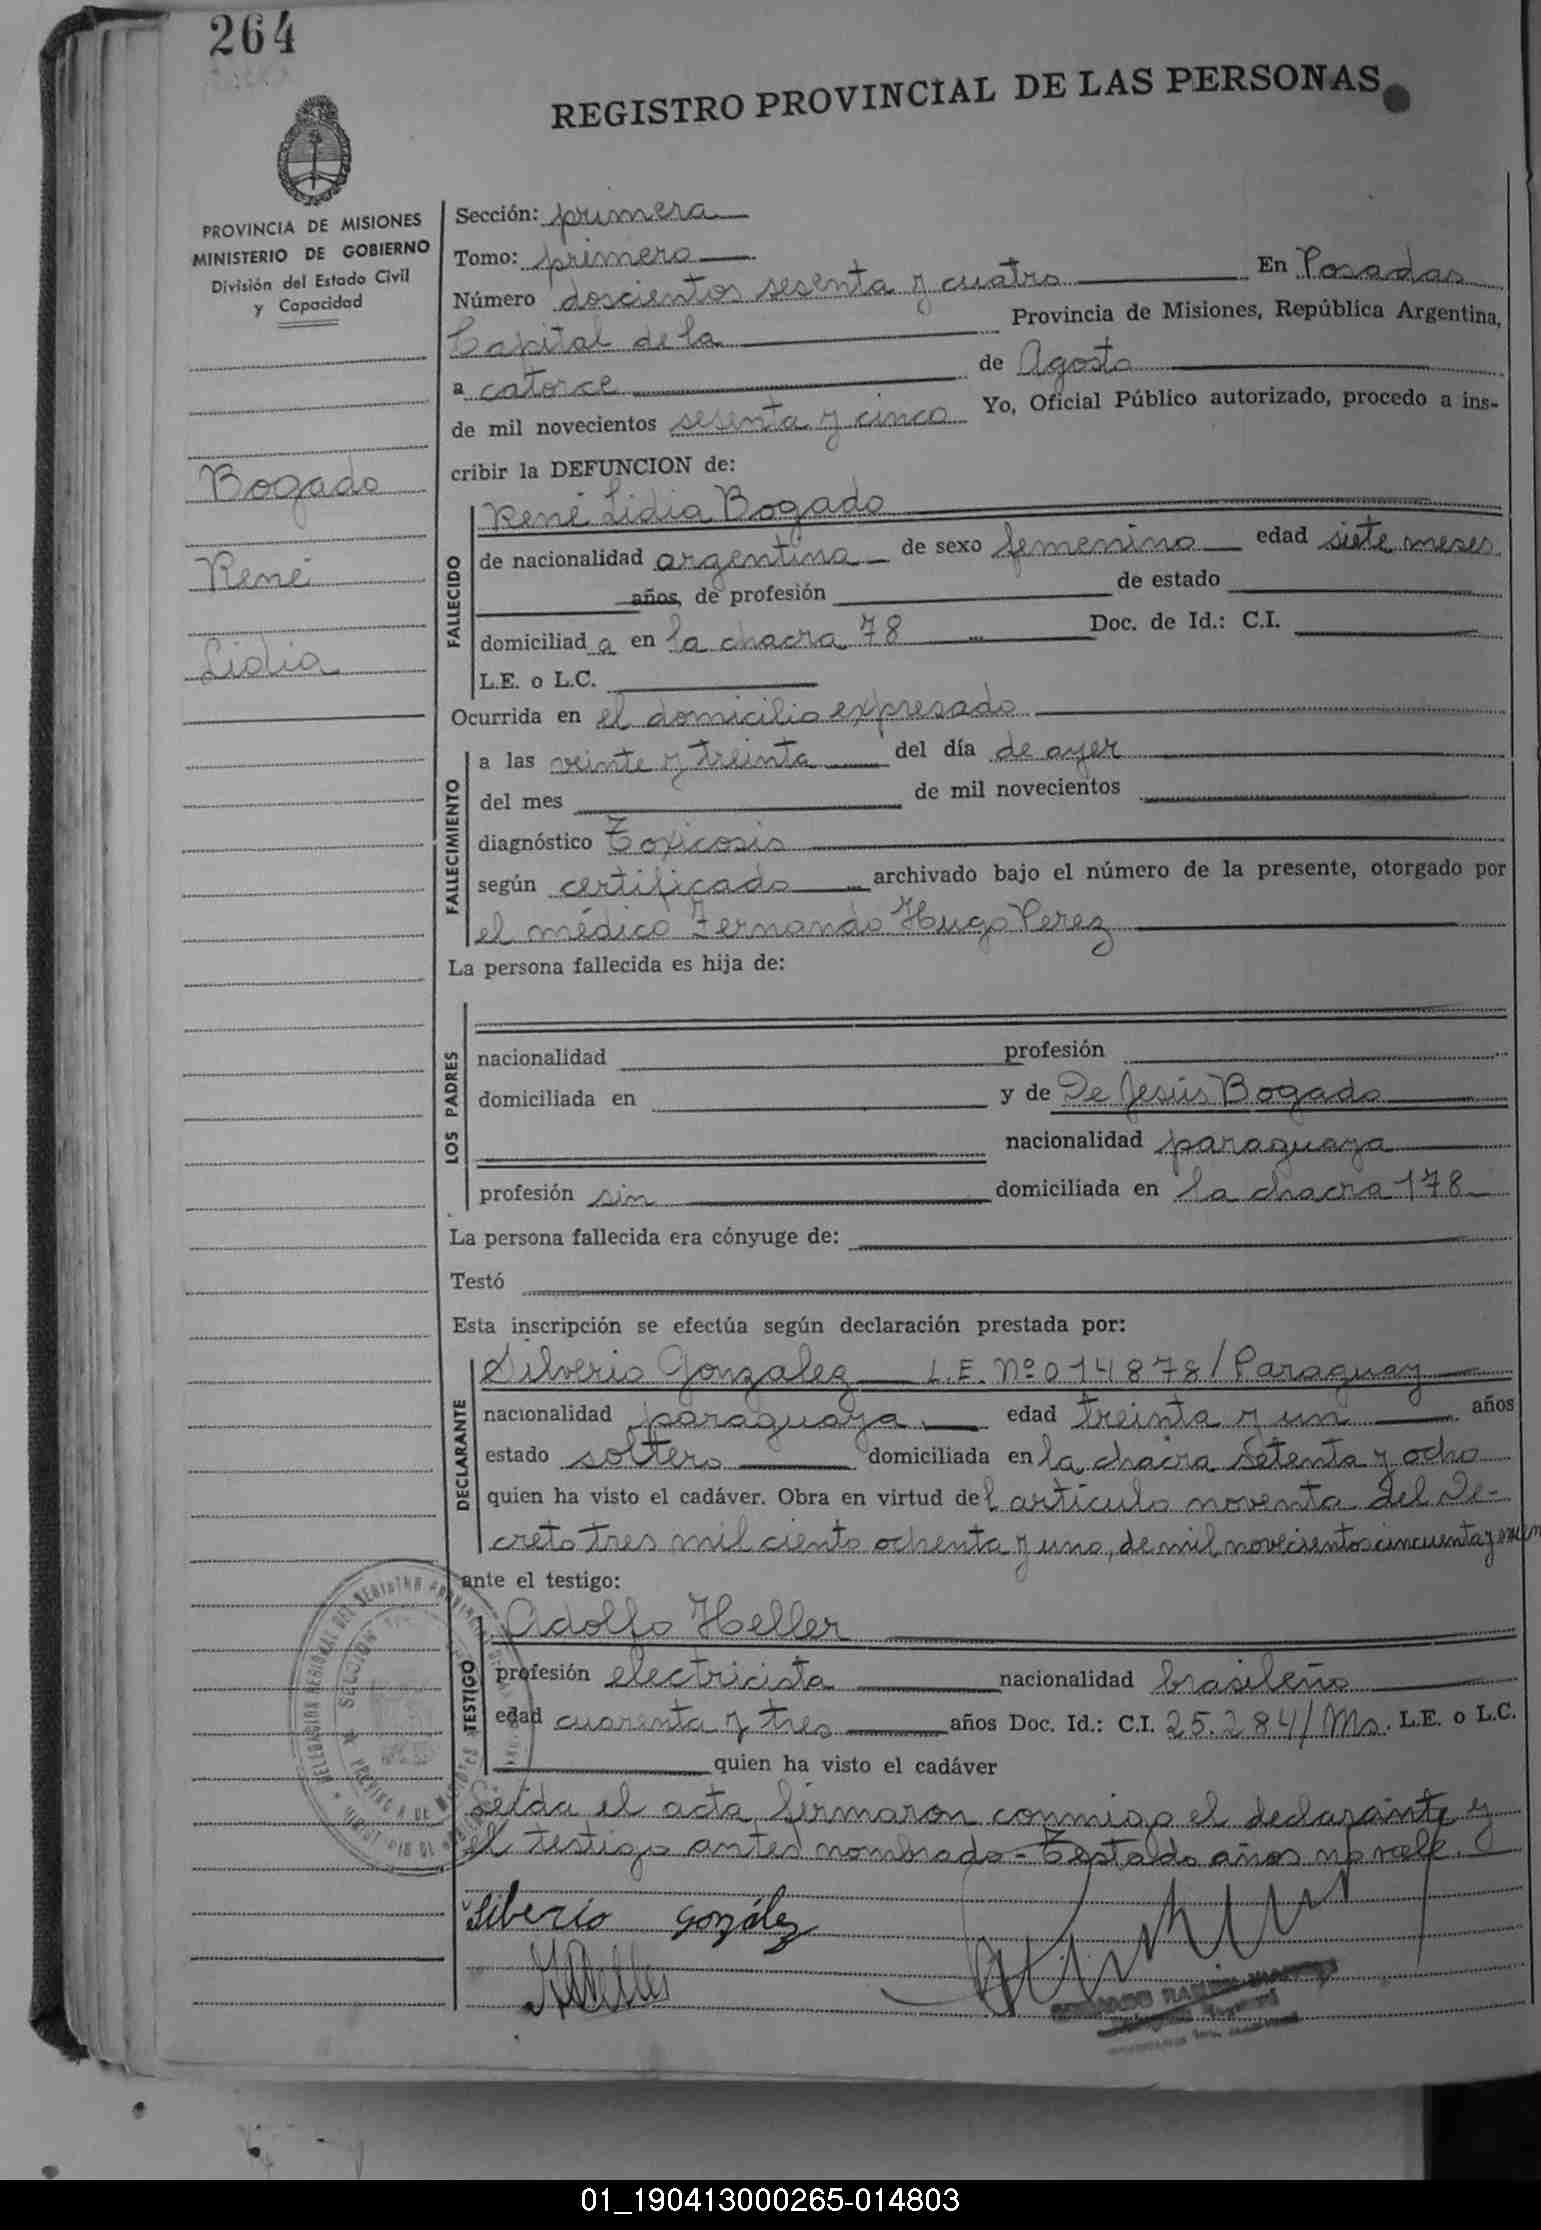 264
REGISTRO PROVINCIAL DE LAS PERSONAS
PROVINCIA DE MISIONES
MINISTERIO DE GOBIERNO
División del Estado Civil
y Capacidad
Bogado
René
Lidia
Sección: primera
Tomo: primero
Número doscientos sesenta y cuatro En Posadas
Capital de la Provincia de Misiones, República Argentina,
a catorce de Agosto
de mil novecientos sesenta y cinco Yo, Oficial Público autorizado, procedo a ins-
cribir la DEFUNCION de:
FALLECIDO
René Lidia Bogado
de nacionalidad argentina de sexo femenino edad siete meses
años, de profesión de estado
domiciliad a en la chacra 78 Doc. de Id.: C.I.
L.E. o L.C.
Ocurrida en el domicilio expresado
FALLECIMIENTO
a las veinte y treinta del día de ayer
del mes de mil novecientos
diagnóstico Toxicosis
según certificado archivado bajo el número de la presente, otorgado por
el médico Fernando Hugo Perez
La persona fallecida es hija de:
LOS PADRES
nacionalidad profesión
domiciliada en y de De Jesús Bogado
nacionalidad paraguaya
profesión sin domiciliada en la chacra 178
La persona fallecida era cónyuge de:
Testó
Esta inscripción se efectúa según declaración prestada por:
DECLARANTE
Silverio Gonzalez L.E. Nº 014878/Paraguay
nacionalidad paraguaya edad treinta y un años
estado soltero domiciliada en la chacra setenta y ocho
quien ha visto el cadáver. Obra en virtud del artículo noventa del De-
creto tres mil ciento ochenta y uno, de mil novecientos cincuenta y
ante el testigo:
TESTIGO
Adolfo Heller
profesión electricista nacionalidad brasileño
edad cuarenta y tres años Doc. Id.: C.I. 25.284/Ms. L.E. o L.C.
quien ha visto el cadáver
Leída el acta, firmaron conmigo el declarante y
el testigo antes nombrado - Testado años no vale.
Silberio González
AHeller
DELEGACION REGIONAL DEL REGISTRO PROVINCIAL
SECCION
PROVINCIA DE MISIONES
01_190413000265-014803